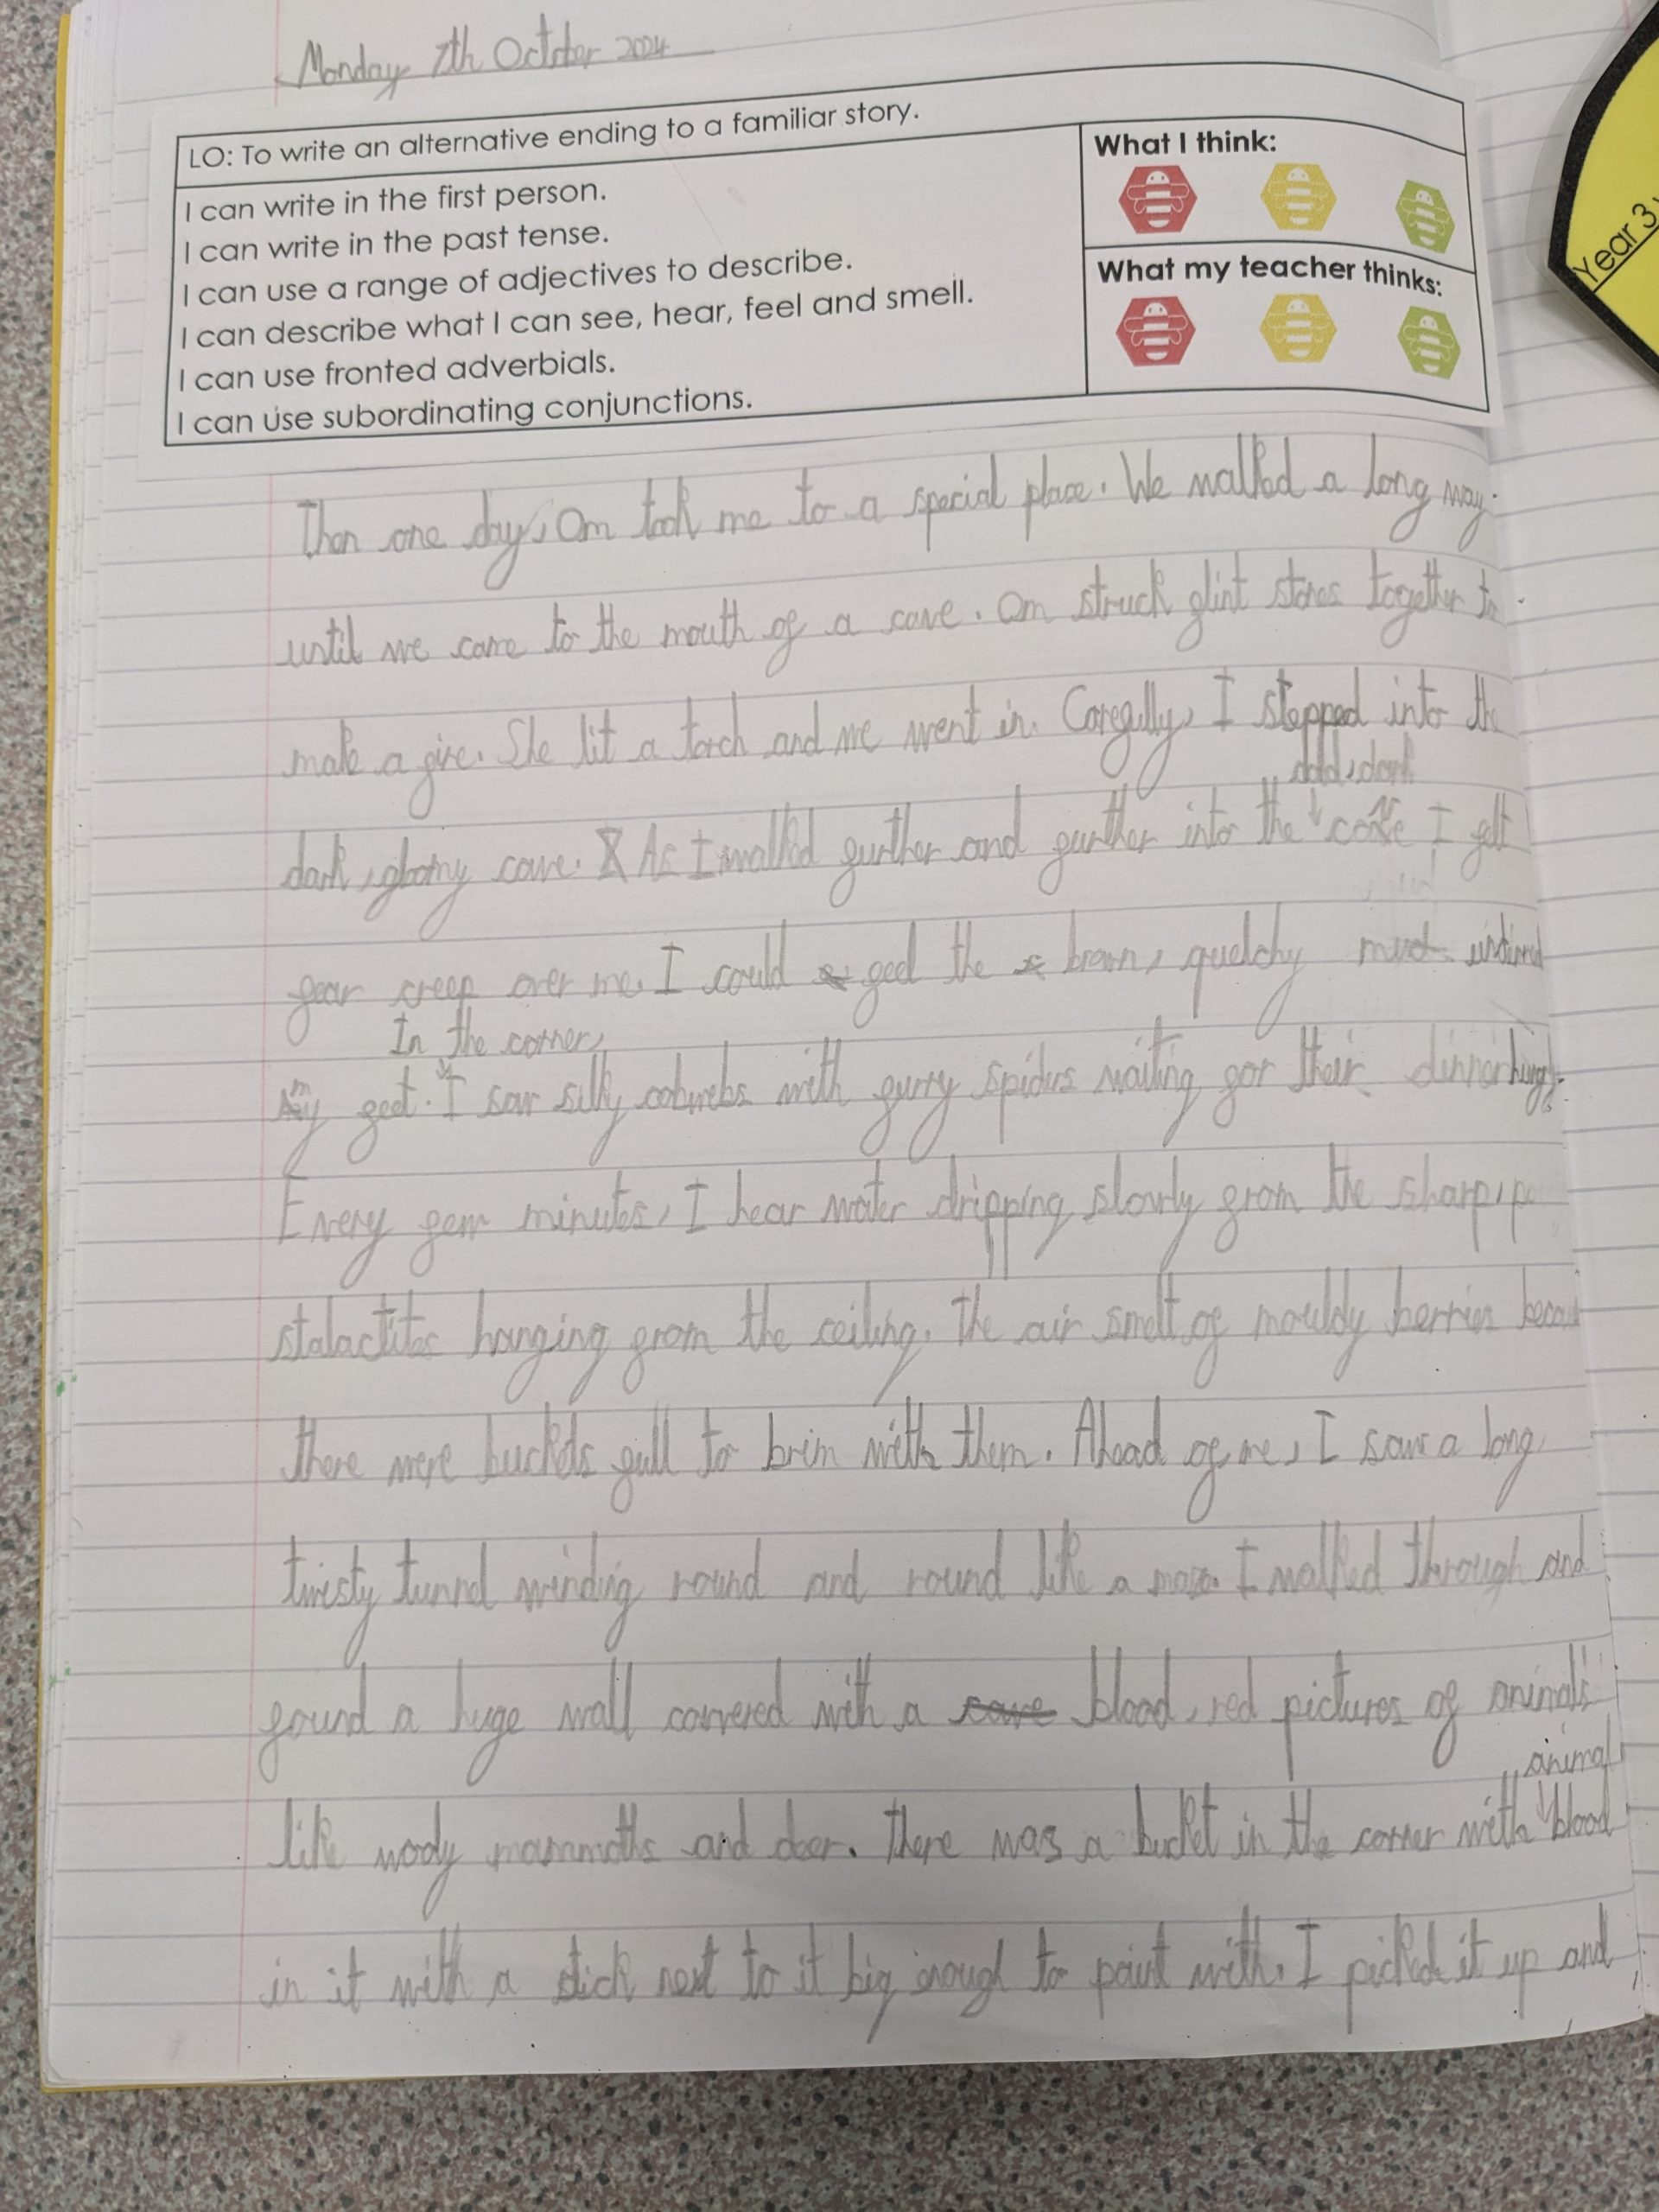 Monday 7th October 2024
LO: To write an alternative ending to a familiar story.
I can write in the first person.
I can write in the past tense.
I can use a range of adjectives to describe.
I can describe what I can see, hear, feel and smell.
I can use fronted adverbials.
I can use subordinating conjunctions.
What I think:
What my teacher thinks:
Year 3
Then one day, Om took me to a special place. We walked a long way
until we came to the mouth of a cave. Om struck flint stones together to
make a fire. She lit a torch and we went in. Carefully, I stepped into the
dark
dark, gloomy cave. As I walked further and further into the cave I felt
fear creep over me. I could feel the brown, quelchy mud
In the corner,
my feet. I saw silky cobwebs with furry spiders waiting for their dinner
Every few minutes, I hear water dripping slowly from the sharp, p
stalactites hanging from the ceiling. The air smelt of mouldy berries becau
there were buckets full to brim with them. Ahead of me, I saw a long
twisty tunnel winding round and round like a maze. I walked through and
found a huge wall covered with a cave blood, red pictures of animals
animal
like wooly mammoths and deer. There was a bucket in the corner with blood
in it with a stick next to it big enough to paint with. I picked it up and